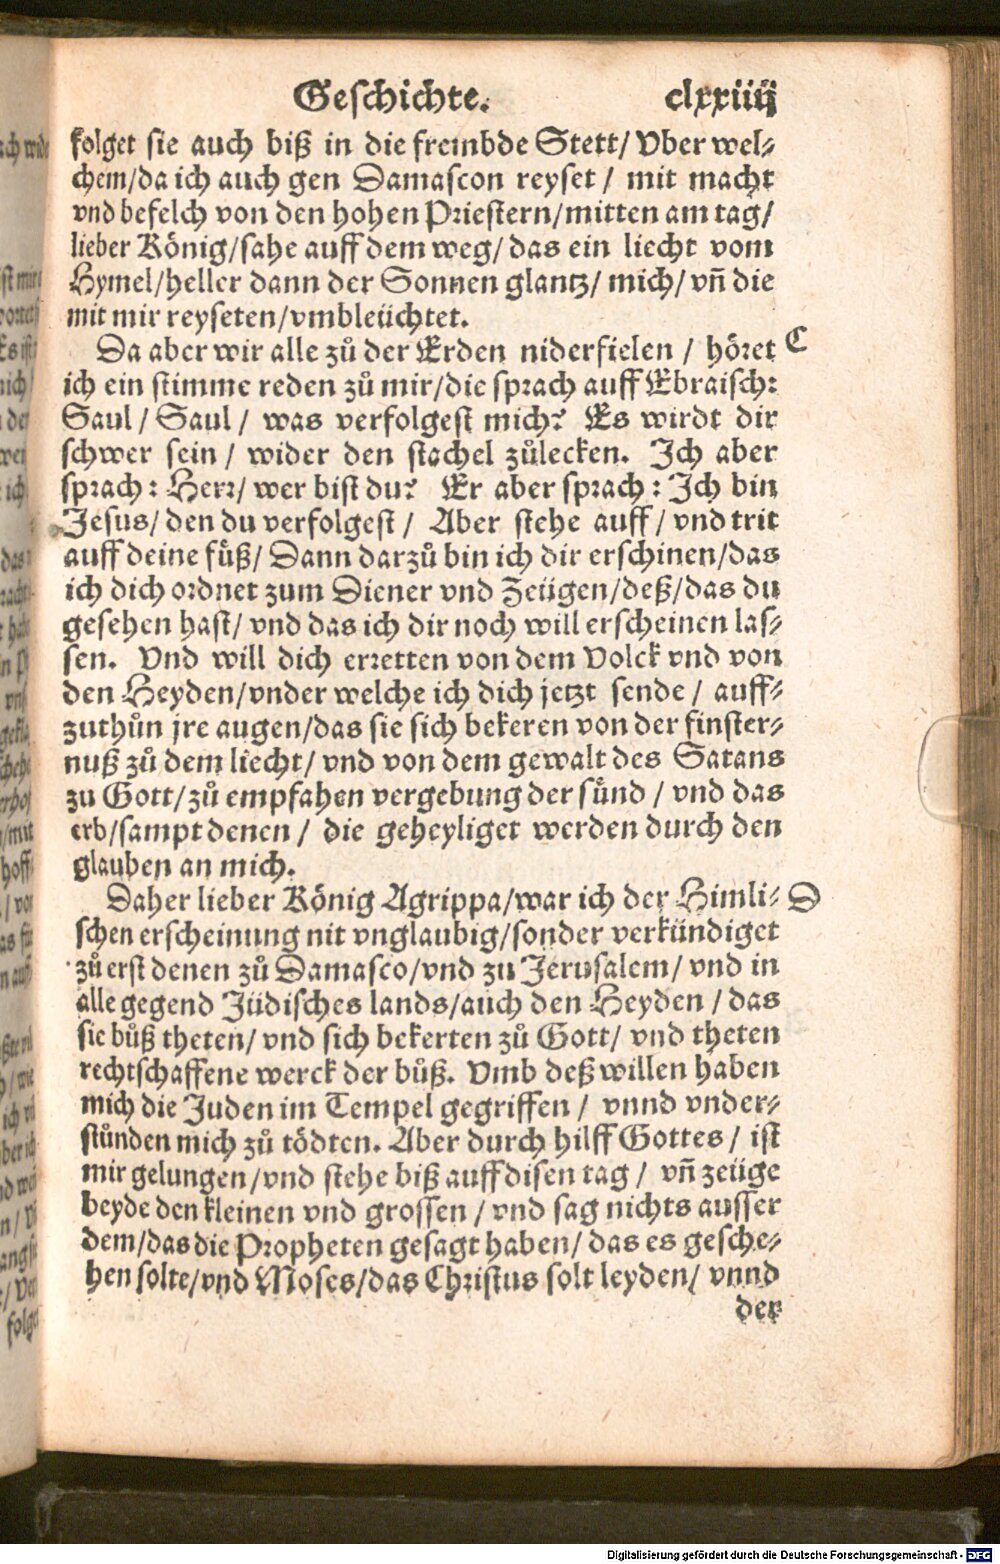 Geschichte. clxxiiij
folget sie auch biß in die frembde Stett/ Vber wel⸗
chem/da ich auch gen Damascon reyset / mit macht
vnd befelch von den hohen Priestern/mitten am tag/
lieber König/sahe auff dem weg/das ein liecht vom
Hymel/heller dann der Sonnen glantz/ mich/ vñ die
mit mir reyseten/vmbleüchtet.
Da aber wir alle zů der Erden niderfielen / höret C
ich ein stimme reden zů mir/die sprach auff Ebraisch:
Saul / Saul / was verfolgest mich? Es wirdt dir
schwer sein / wider den stachel zůlecken. Ich aber
sprach: Herr/ wer bist du? Er aber sprach: Ich bin
Jesus/ den du verfolgest / Aber stehe auff/ vnd trit
auff deine füß/ Dann darzů bin ich dir erschinen/das
ich dich ordnet zum Diener vnd Zeügen/deß/das du
gesehen hast/ vnd das ich dir noch will erscheinen las⸗
sen. Vnd will dich erretten von dem Volck vnd von
den Heyden/vnder welche ich dich jetzt sende / auff⸗
zuthůn jre augen/das sie sich bekeren von der finster⸗
nuß zů dem liecht/ vnd von dem gewalt des Satans
zu Gott/zů empfahen vergebung der sünd / vnd das
erb/sampt denen / die geheyliget werden durch den
glauben an mich.
Daher lieber König Agrippa/war ich der Himli⸗ D
schen erscheinung nit vnglaubig/sonder verkündiget
zů erst denen zů Damasco/vnd zu Jerusalem/ vnd in
alle gegend Jüdisches lands/auch den Heyden / das
sie bůß theten/ vnd sich bekerten zů Gott/ vnd theten
rechtschaffene werck der bůß. Vmb deß willen haben
mich die Juden im Tempel gegriffen / vnnd vnder⸗
stůnden mich zů tödten. Aber durch hilff Gottes / ist
mir gelungen/vnd stehe biß auff disen tag / vñ zeüge
beyde den kleinen vnd grossen / vnd sag nichts ausser
dem/das die Propheten gesagt haben/ das es gesche⸗
hen solte/vnd Moses/das Christus solt leyden/ vnnd
der
Digitalisierung gefördert durch die Deutsche Forschungsgemeinschaft - DFG